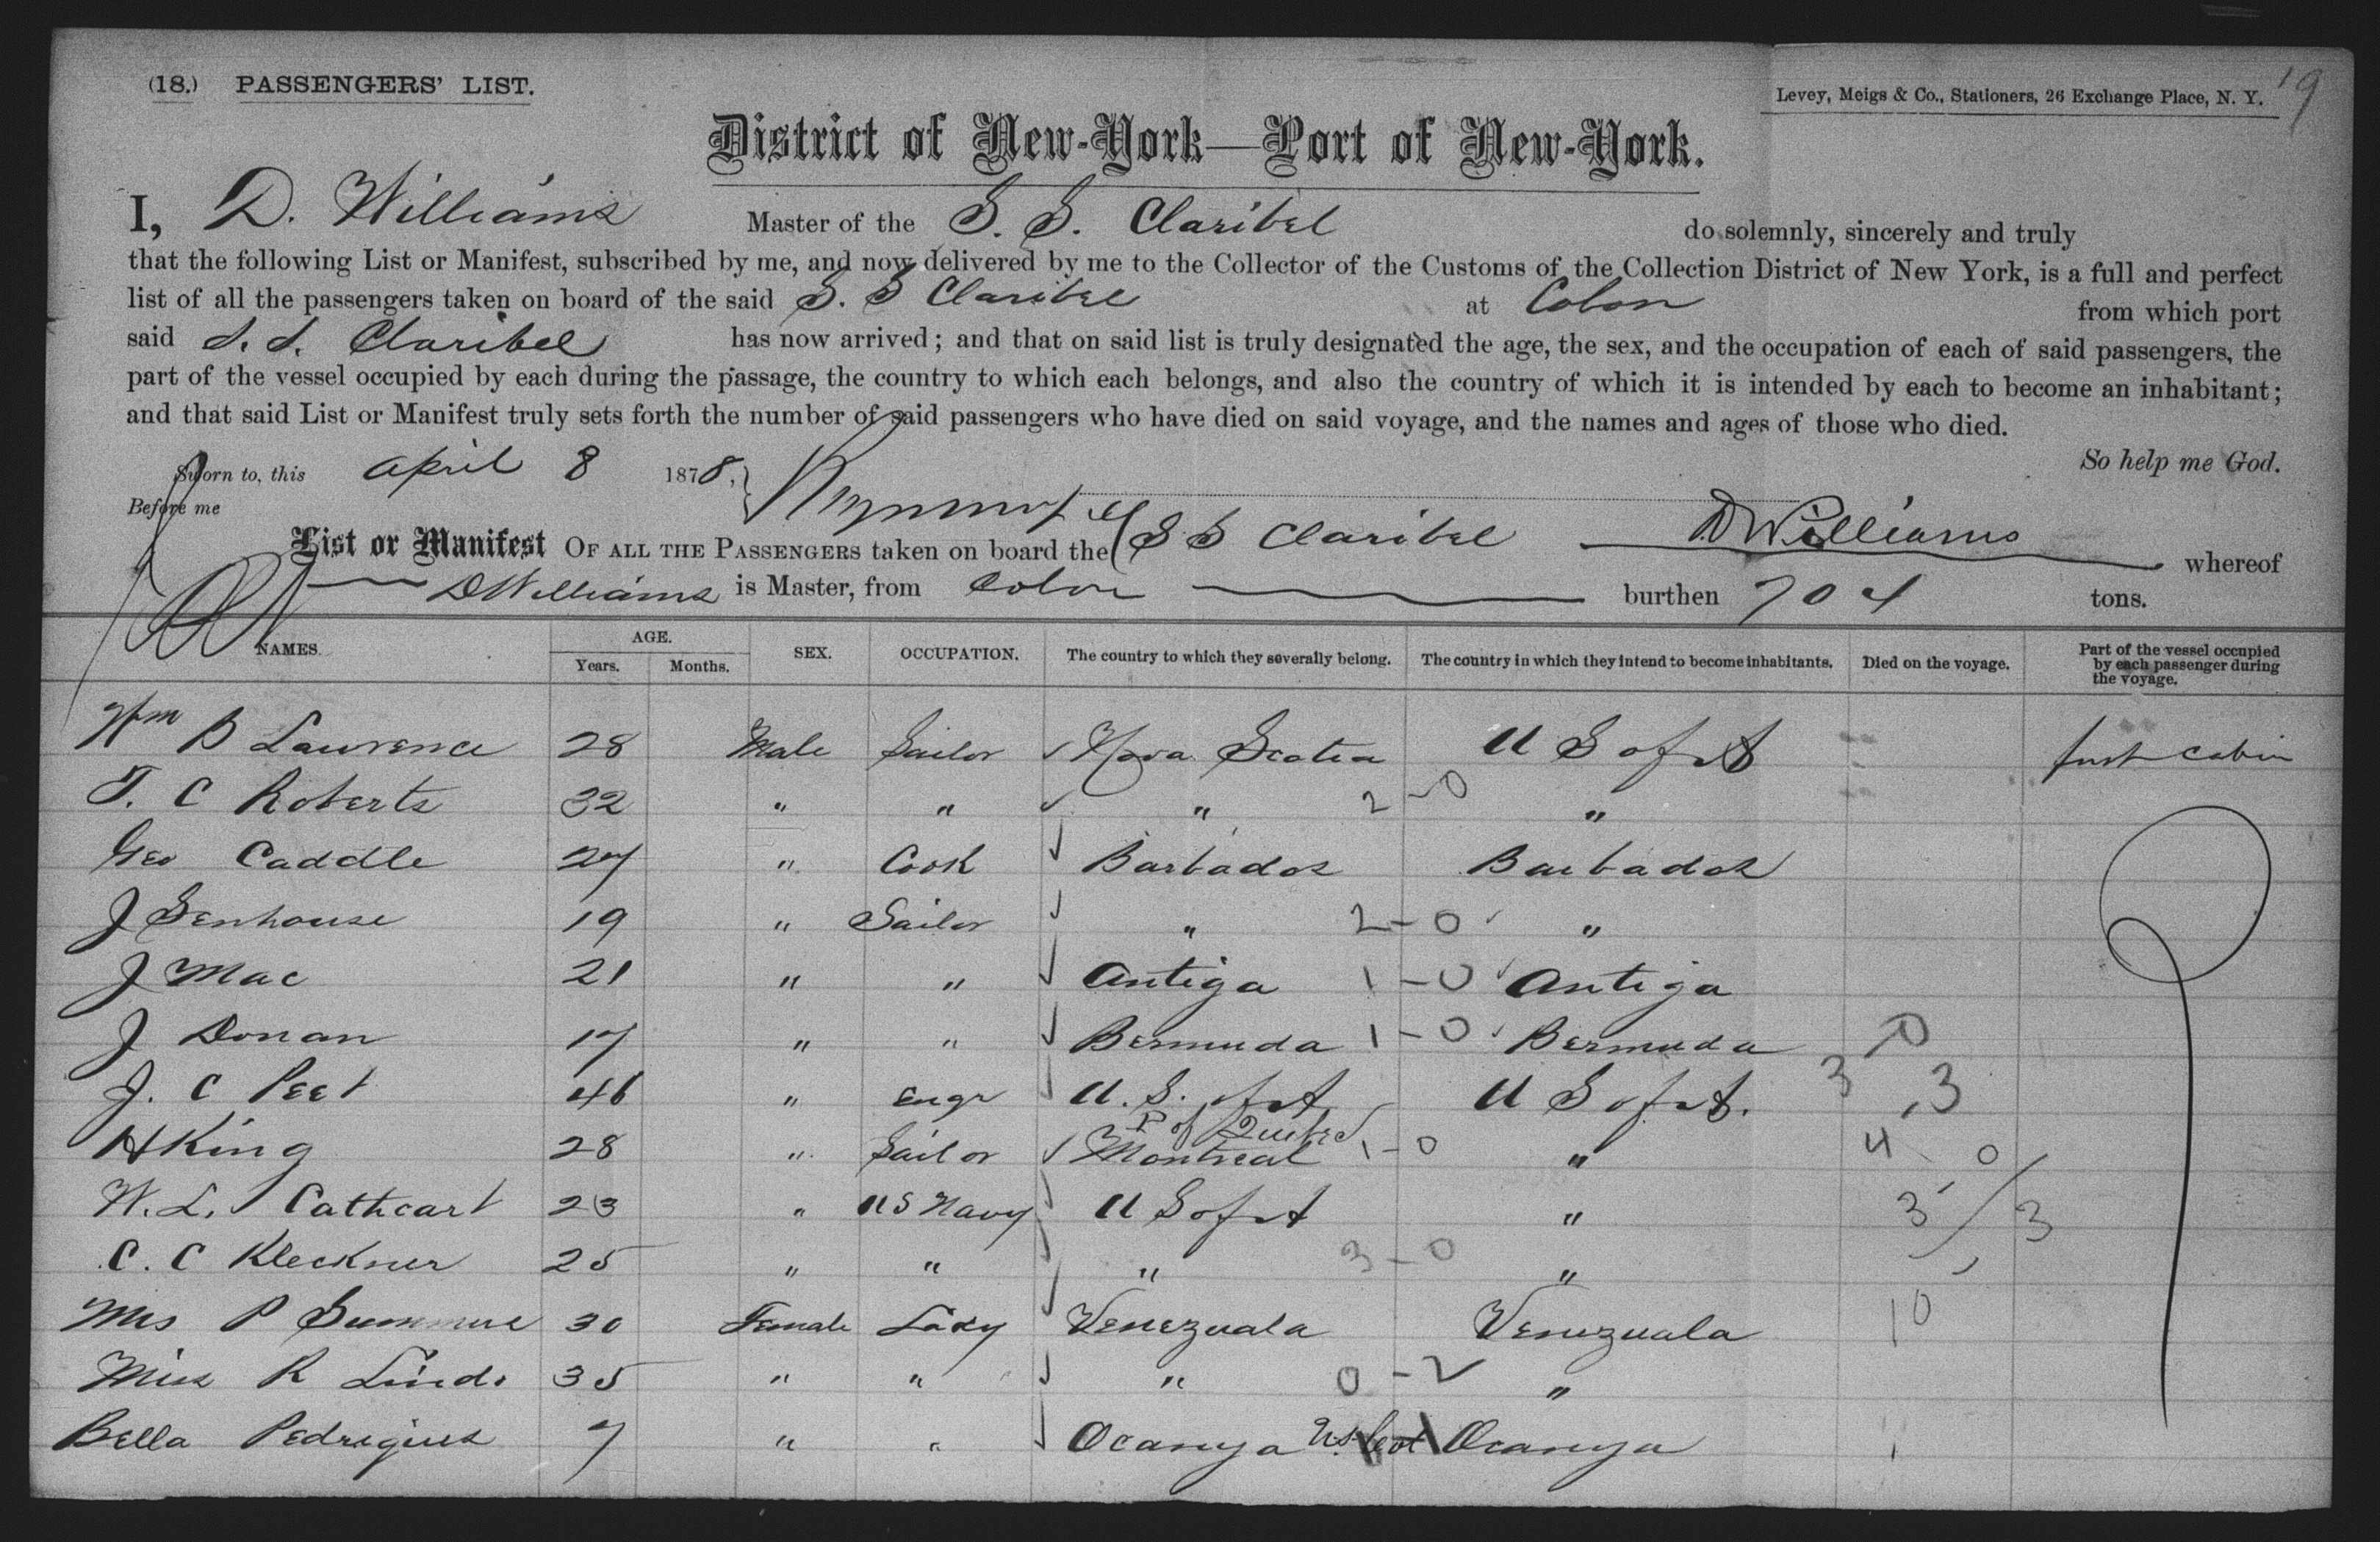 (18.) PASSENGERS' LIST.
Levey, Meigs & Co., Stationers, 26 Exchange Place, N. Y.
19
District of New-York—Port of New-York.
I, D. Williams Master of the S. S. Claribel do solemnly, sincerely and truly
that the following List or Manifest, subscribed by me, and now delivered by me to the Collector of the Customs of the Collection District of New York, is a full and perfect
list of all the passengers taken on board of the said S. S Claribel at Colon from which port
said S. S. Claribel has now arrived; and that on said list is truly designated the age, the sex, and the occupation of each of said passengers, the
part of the vessel occupied by each during the passage, the country to which each belongs, and also the country of which it is intended by each to become an inhabitant;
and that said List or Manifest truly sets forth the number of said passengers who have died on said voyage, and the names and ages of those who died.
So help me God.
Sworn to, this April 8 1878,
Before me
D Williams
List or Manifest OF ALL THE PASSENGERS taken on board the S S Claribel whereof
D Williams is Master, from Colon burthen 704 tons.
NAMES. AGE. Years. Months. SEX. OCCUPATION. The country to which they severally belong. The country in which they intend to become inhabitants. Died on the voyage. Part of the vessel occupied by each passenger during the voyage.
Wm B Lawrence 28 Male Sailor Nova Scotia U S of A first cabin
T. C Roberts 32 " " " 2-0 "
Geo Caddle 27 " Cook Barbados Barbados
J Senhouse 19 " Sailor " 2-0 "
J Mac 21 " " Antiga 1-0 Antiga
J Donan 17 " " Bermuda 1-0 Bermuda
J. C Peet 46 " Engr U. S. of A U S of A. 3 3
P of Quebec
H King 28 " Sailor Montreal 1-0 " 4 0
W. L. Cathcart 23 " U S Navy U S of A " 3 / 3
C. C Kleckner 25 " " " 3-0 "
Mrs P 30 Female Lady Venezuala Venezuala 10
Miss R 35 " " " 0-2 "
Bella Pedrigues 7 " " Ocanya Ocanya